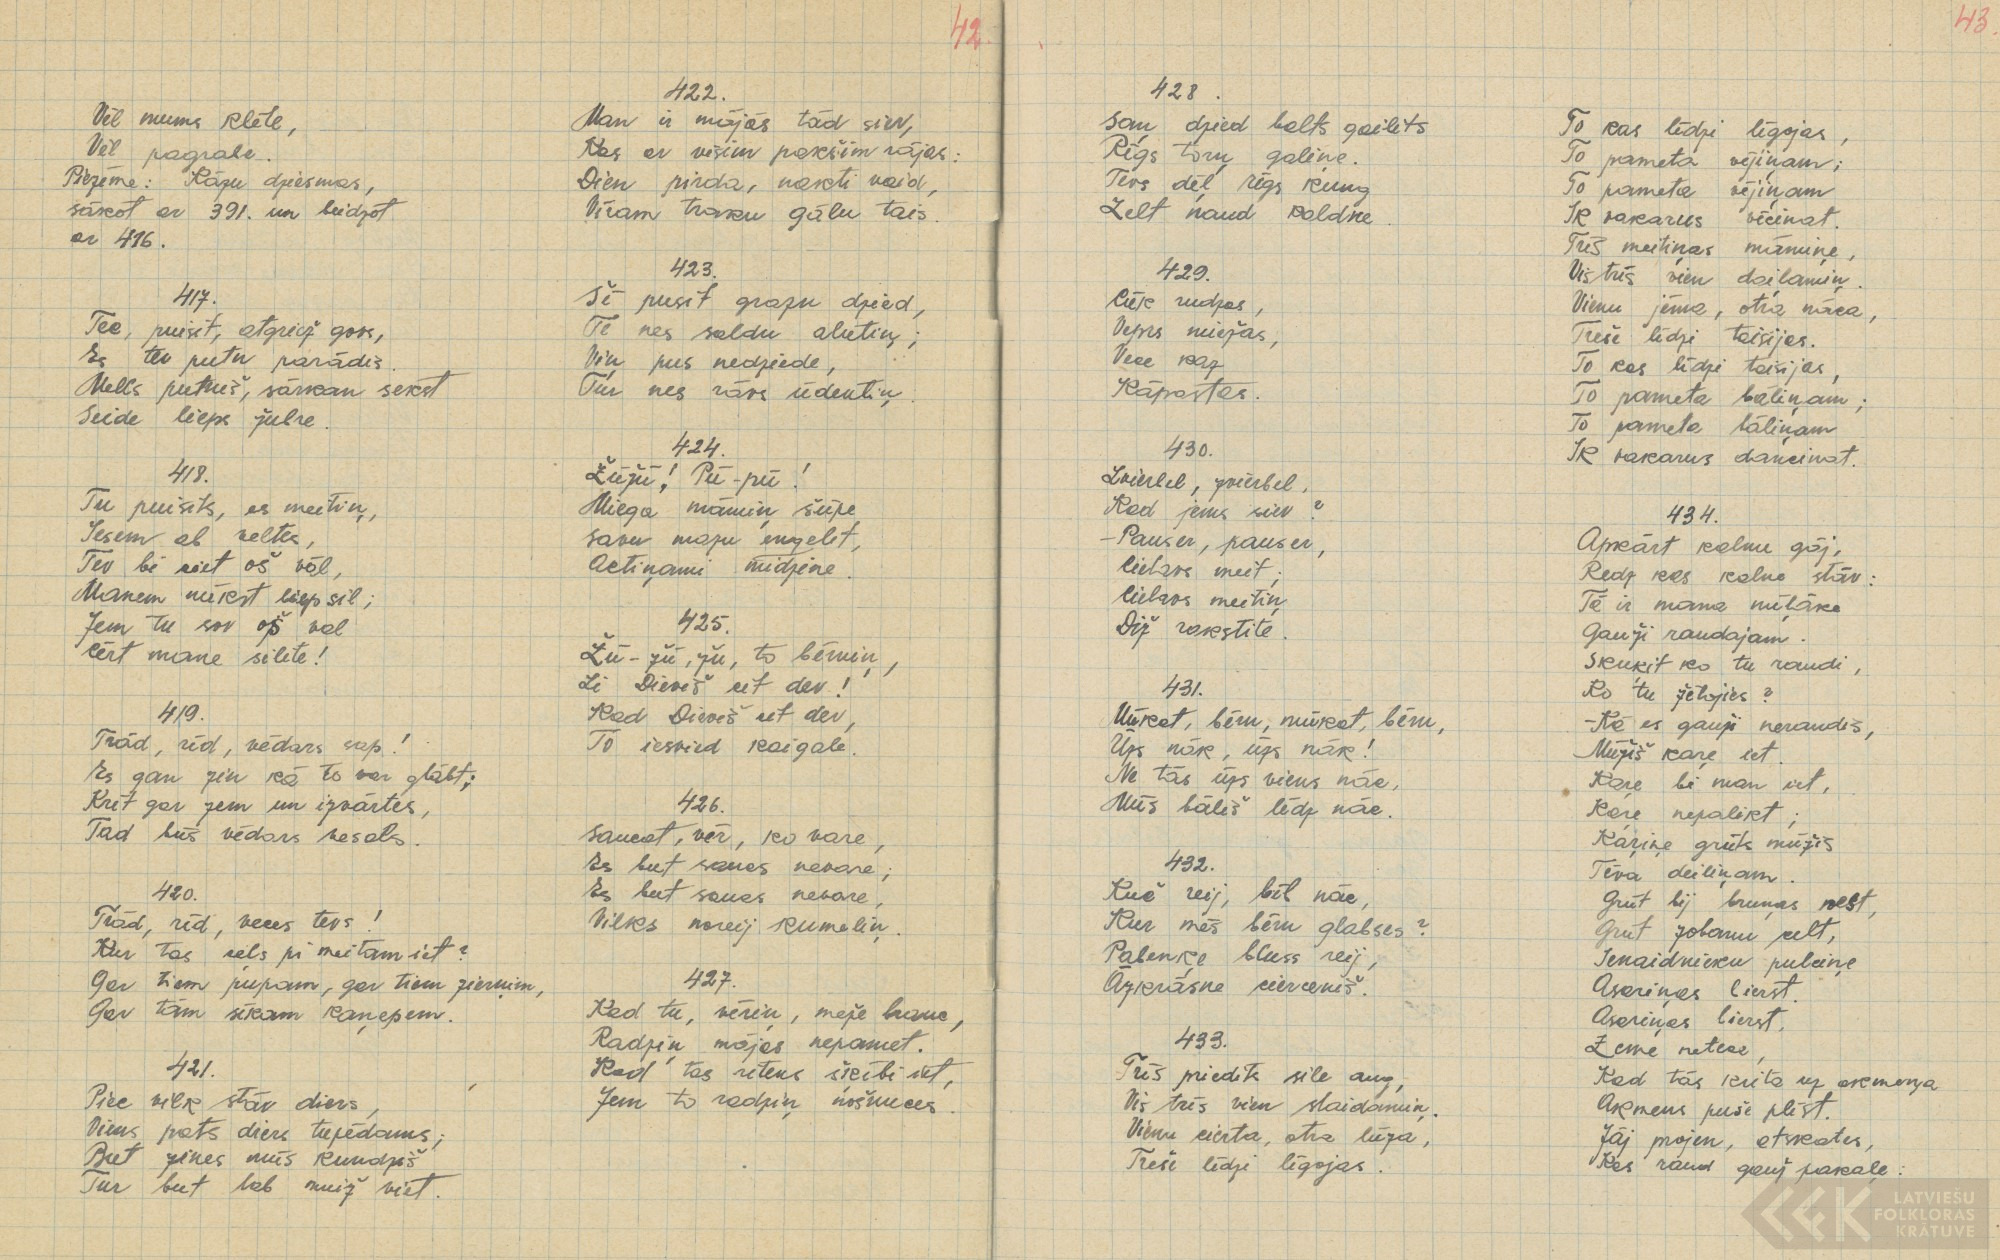 42.
Vēl mums klēte,
Vēl pagrabe.
Piezīme: Kāzu dziesmas,
sākot ar 391. un beidzot
ar 416.
417.
Tec, puisīt, atgriez govs,
Es tev putn parādīs.
Mells putniš, sārkan sekst
Seide lieps zubre.
418.
Tu puisīts, es meitiņ,
Iesem ab veltes,
Tev bi ciet oš vāl,
Manem mīkst liep sil;
Jem tu sov oš vāl
Cērt mane silite!
419.
Trād, rīd, vēdars sāp!
Es gan zin kā to var glābt;
Krīt gar zem un izvārtes,
Tad būs vēdars vesals.
420.
Trād, rīd, veces tevs!
Kur tas cels pi meitam iet?
Gar tiem pupam, gar tiem zierņim,
Gar tām sīkam kaņepem.
421.
Piec vilk stāv diers,
Viens pats diers tupēdams;
But zines mūs kundziš
Tur but lab muiž viet.
422.
Man ir mājās tād siev,
Kas ar visim pakšim rājas:
Dien pirda, nakti vaid,
Vīram traku gālu tais.
423.
Šī pusīt grazu dzied,
Te nes saldu alutiņ;
Viņ pus nedziede,
Tur nes rāvs ūdentiņ.
424.
Žūžū! Pū-pū!
Miega māmiņ šūpe
Savu mazu engelīt,
Actiņami midzine.
425.
Žū-žū, žu, to bērniņ,
Li Dieviš iet dev!
Kad Dieviš iet dev,
To iesvied kaigale.
426.
Saucat, vēr, ko vare,
Es but saucs nevare;
Es but saucs nevare,
Vilks noreij kumeliņ.
427.
Kad tu, vēriņ, meže brauc,
Radziņ mājās nepamet.
Kad tas ritens šķībi iet,
Jem to radziņ nošņuces.
43.
428.
Saņ dzied balts gailīts
Rīgs torņ galiņe.
Tevs dēļ rīgs kung
Zelt naud kaldne.
429.
Cūk rudzos,
Vepris miežas,
Vece kaz
Kāpostas.
430.
Zvierbel, zvierbel,
Kad jems siev?
-Pauser, pauser,
Cielavs meit;
Cielavs meitiņ
Diž rakstīte.
431.
Mūkat, bēru, mūkat, bēru,
Ūps nāk, ūps nāk!
Ne tās ūps viens nāc,
Mūs bāliš līdz nāc.
432.
Kuc reij, bīl nāc,
Kur mēs bēru glabses?
Pabenķe bluss reij,
Aizkrāsne circeniš.
433.
Trīs priedīts sile aug,
Vis trīs vien slaidamiņ.
Vienu cierta, otra lūza,
Treše līdzi līgojas.
To kas līdzi līgojas,
To pameta vējiņam;
To pameta vējiņam
Ik vakarus vēcinat.
Trīš meitiņas māmiņe,
Vis trīs vien dailamiņ.
Vienu jēma, otra nāca,
Treše līdzi taisijas.
To kas līdzi taisijas,
To pameta bāliņam;
To pameta bāliņam
Ik vakarus dancinat.
434.
Apkārt kalnu gāj,
Redz kas kalne stāv:
Tā ir mana mīļāke
Gauži raudajam.
Skuķīt ko tu raudi,
Ko tu žēlojies?
-Kā es gauži neraudiš,
Mūžiš kaŗe iet.
Kaŗe bi man iet,
Kaŗe nepalikt;
Kāŗiņe grūts mūžiš
Tēva dēliņam.
Grūt bij bruņas nest,
Grūt zobanu celt,
Ienaidnieku pulciņe
Asariņas bierst.
Asariņas bierst,
Zeme netece,
Kad tās krita uz akmeņa
Akmens puše plīst.
Jāj projen, atskates,
Kas raud gauž pakaļe:
LATVIEŠU
FOLKLORAS
KRĀTUVE